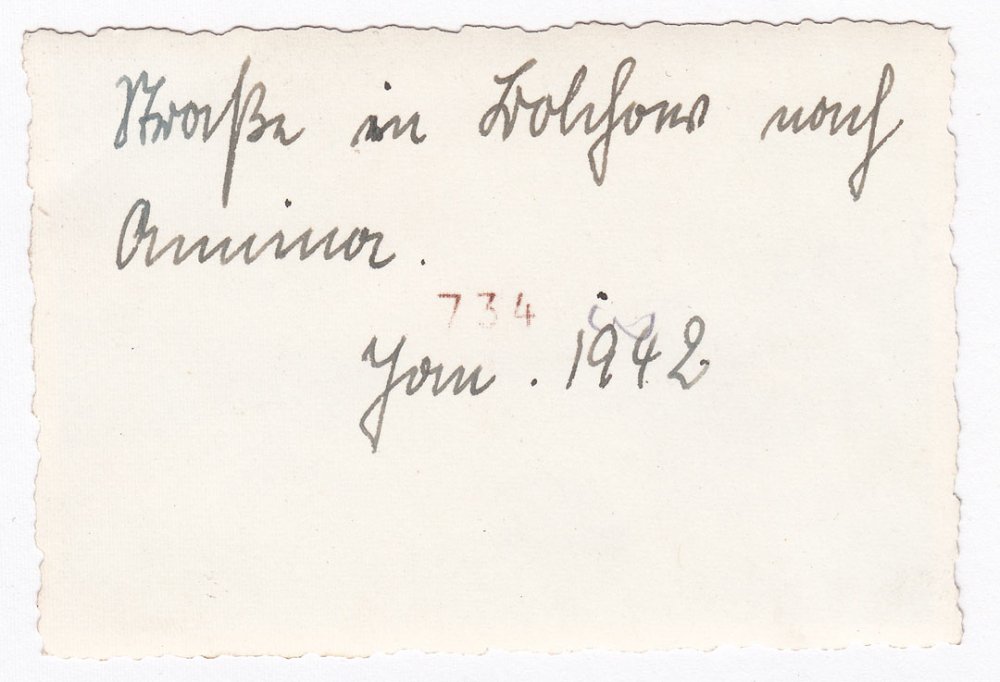 Straße in Bolchow nach
734
Jan. 1942